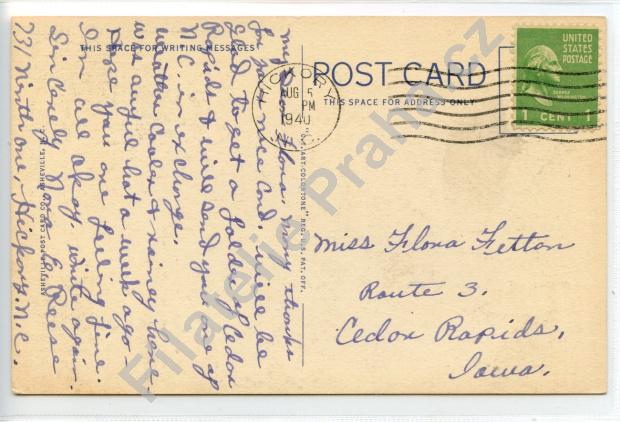 THIS SPACE FOR WRITING MESSAGES
POST CARD
THIS SPACE FOR ADDRESS ONLY
HICKORY
AUG 5
PM
1940
N.C.
UNITED
STATES
POSTAGE
GEORGE
WASHINGTON
1 CENT 1
My Dear Flora, Many thanks
for your nice card. Will be
glad to get a folder of Cedar
Rapids & will send you one of
N.C. in exchange.
Weather cooler & rainy here.
was awful hot a week ago.
Hope you are feeling fine.
I'm all okay. Write again.
Sincerely, N. E. Reese
731 Ninth Ave, Hickory, N.C.
ASHEVILLE POST CARD CO., ASHEVILLE, N.C.
"TICHNOR ART-COLORTONE" REG. U.S. PAT. OFF.
Miss Flora Fetton
Route 3.
Cedar Rapids,
Iowa.
Filatelie Praha.cz